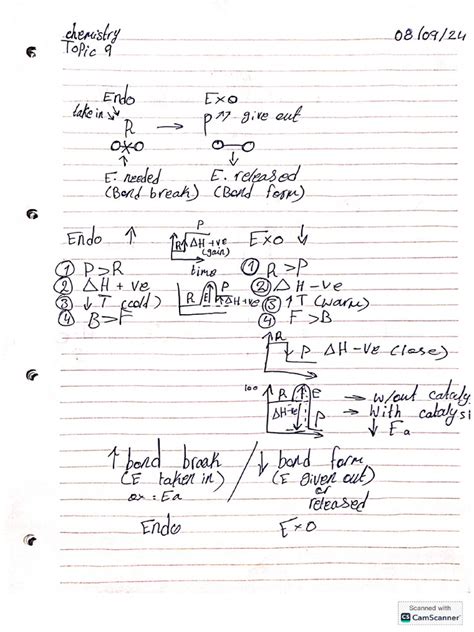 chemistry 08/09/24
Topic 9
Endo Exo
take in R → P ↑↑ give out
E. needed E. released
(Bond break) (Bond form)
Endo ↑ P R ΔH +ve (gain) Exo ↓
① P>R time ① R>P
② ΔH +ve R E P ΔH +ve ② Δ H -ve
③ ↓ T (cold) ③ ↑ T (warm)
④ B>F ④ F>B
R P ΔH -ve (lose)
100 R E → w/out cataly
ΔH -ve P → With catalysi
↓ Ea
↑ bond break / ↓ bond form
(E taken in) (E given out)
ex : Ea or
released
Endo Exo
Scanned with
CS CamScanner